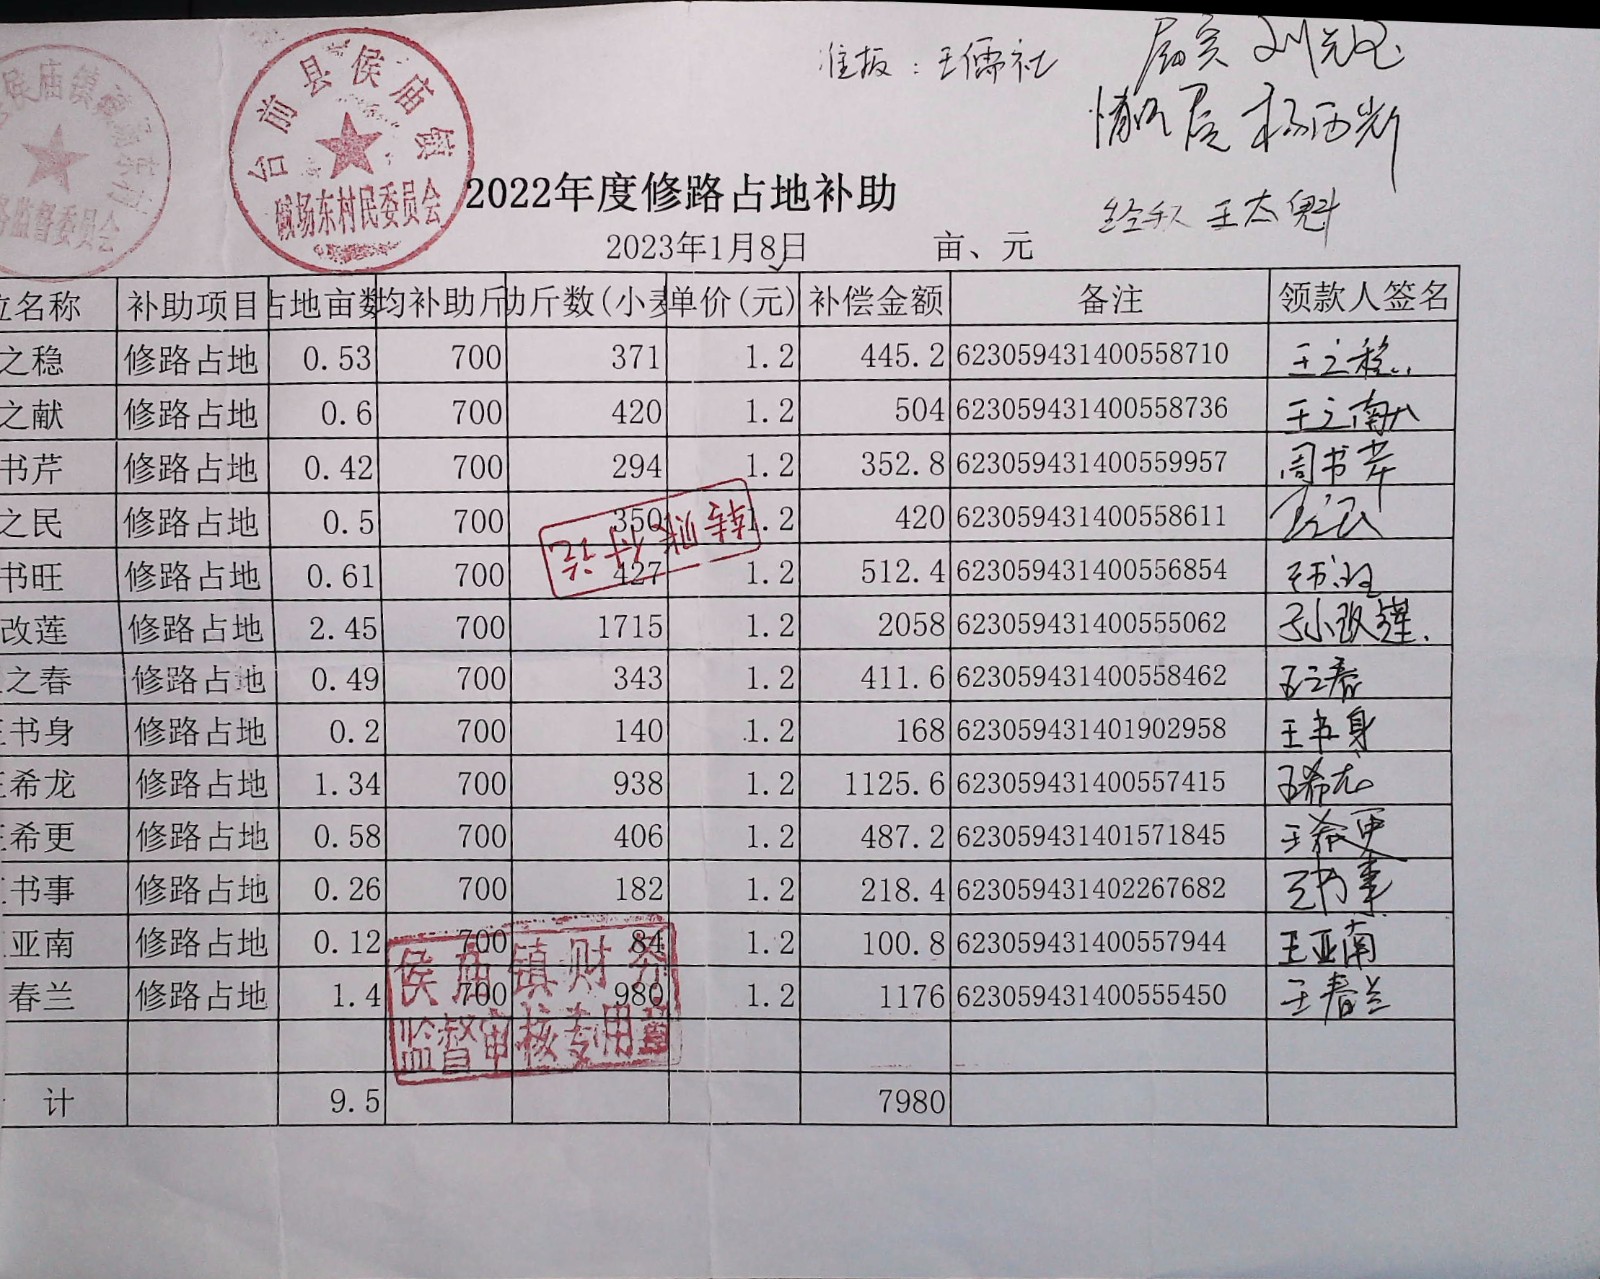 准报：王儒社
属实 刘克记
情况属实 杨西岭
台前县侯庙镇
碱场东村民委员会
2022年度修路占地补助
经手人 王太魁
2023年1月8日 亩、元
位名称 补助项目 占地亩数 均补助斤 助斤数(小麦 单价(元) 补偿金额 备注 领款人签名
之稳 修路占地 0.53 700 371 1.2 445.2 623059431400558710 王之稳
之献 修路占地 0.6 700 420 1.2 504 623059431400558736 王之献
书芹 修路占地 0.42 700 294 1.2 352.8 623059431400559957 周书芹
之民 修路占地 0.5 700 350 1.2 420 623059431400558611 王之民
书旺 修路占地 0.61 700 427 1.2 512.4 623059431400556854 王书旺
改莲 修路占地 2.45 700 1715 1.2 2058 623059431400555062 孙改莲
之春 修路占地 0.49 700 343 1.2 411.6 623059431400558462 王之春
王书身 修路占地 0.2 700 140 1.2 168 623059431401902958 王书身
王希龙 修路占地 1.34 700 938 1.2 1125.6 623059431400557415 王希龙
王希更 修路占地 0.58 700 406 1.2 487.2 623059431401571845 王希更
王书事 修路占地 0.26 700 182 1.2 218.4 623059431402267682 王书事
亚南 修路占地 0.12 700 84 1.2 100.8 623059431400557944 王亚南
春兰 修路占地 1.4 700 980 1.2 1176 623059431400555450 王春兰
侯庙镇财务
监督审核专用章
计 9.5 7980